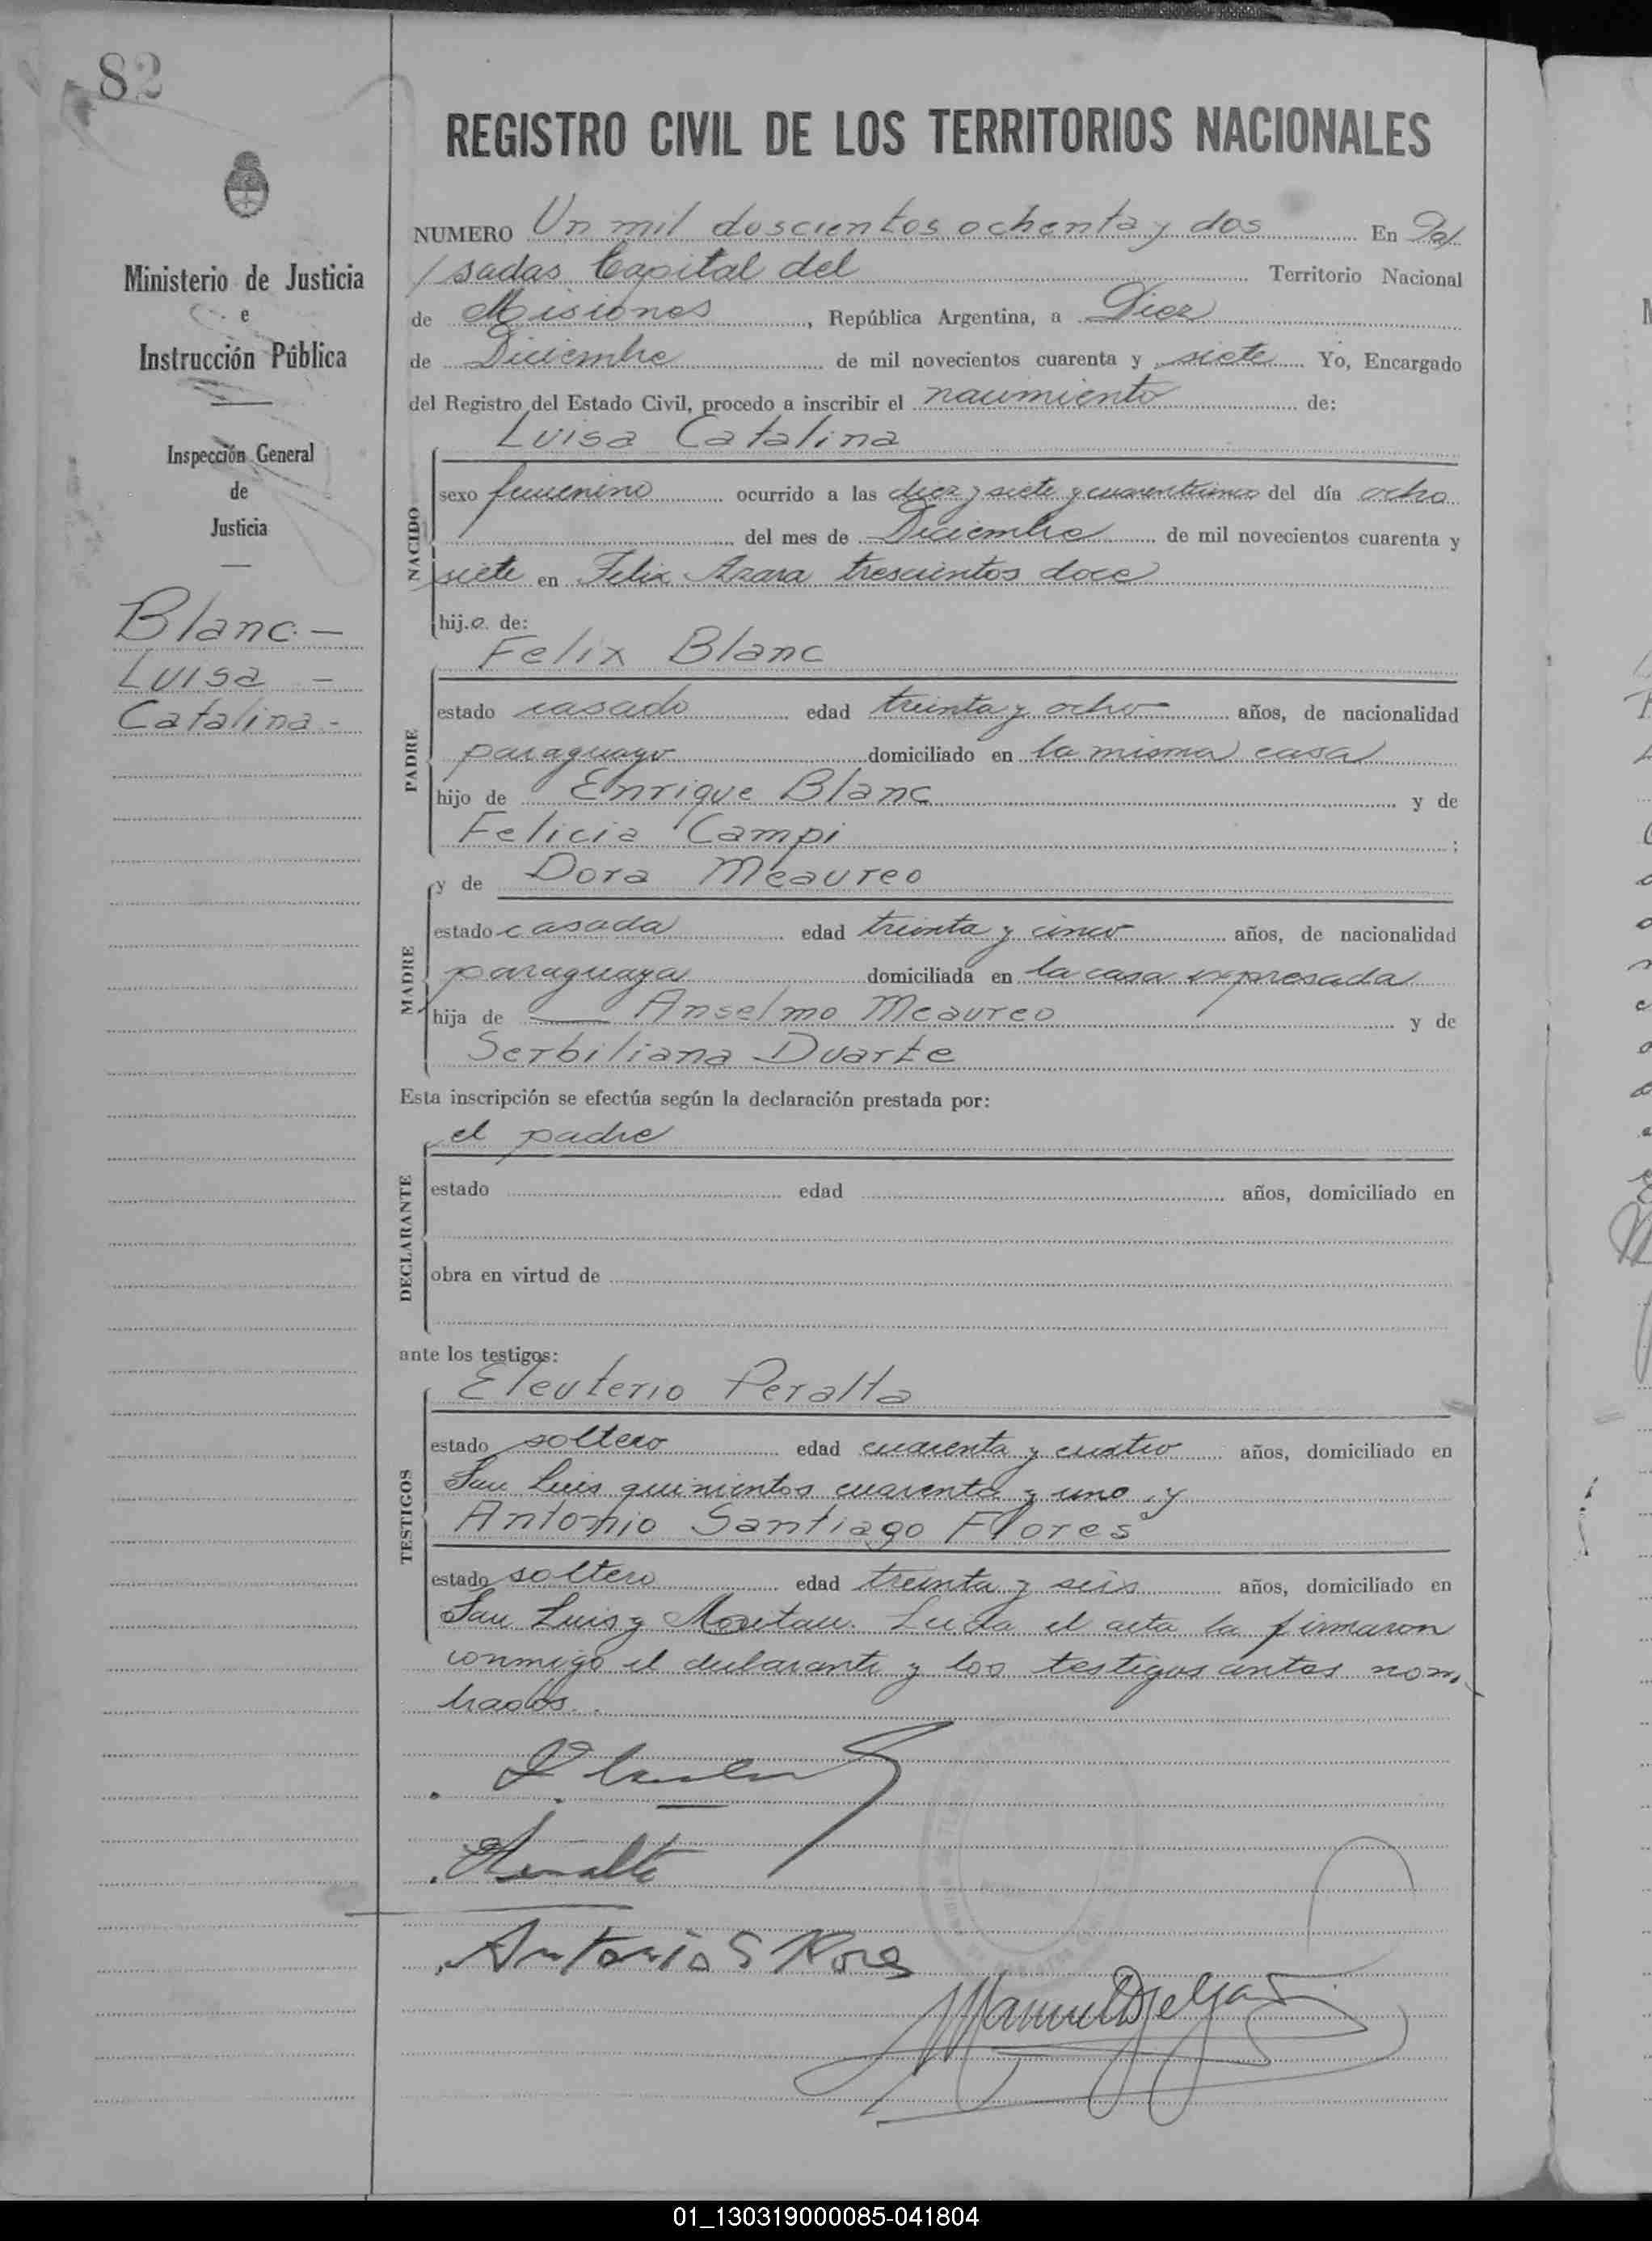 82
Ministerio de Justicia
e
Instrucción Pública
Inspección General
de
Justicia
Blanc.-
Luisa -
Catalina.-
REGISTRO CIVIL DE LOS TERRITORIOS NACIONALES
NUMERO Un mil doscientos ochenta y dos En Po/
/sadas Capital del Territorio Nacional
de Misiones, República Argentina, a Diez
de Diciembre de mil novecientos cuarenta y siete Yo, Encargado
del Registro del Estado Civil, procedo a inscribir el nacimiento de:
Luisa Catalina
NACIDO
sexo femenino ocurrido a las diez y siete y cuarenticinco del día ocho
del mes de Diciembre de mil novecientos cuarenta y
siete en Felix Azara trescientos doce
hij.a. de:
Felix Blanc
PADRE
estado casado edad treinta y ocho años, de nacionalidad
paraguayo domiciliado en la misma casa
hijo de Enrique Blanc y de
Felicia Campi ;
y de Dora Meaureo
MADRE
estado casada edad treinta y cinco años, de nacionalidad
paraguaya domiciliada en la casa expresada
hija de Anselmo Meaureo y de
Serbiliana Duarte
Esta inscripción se efectúa según la declaración prestada por:
el padre
DECLARANTE
estado edad años, domiciliado en
obra en virtud de
ante los testigos:
Eleuterio Peralta
TESTIGOS
estado soltero edad cuarenta y cuatro años, domiciliado en
San Luis quinientos cuarenta y uno y
Antonio Santiago Flores
estado soltero edad treinta y seis años, domiciliado en
San Luis y Moritan. Leida el acta la firmaron
conmigo el declarante y los testigos antes nom-
brados.
Peralta
Antonio S Flores
Manuel Delgado
01_130319000085-041804